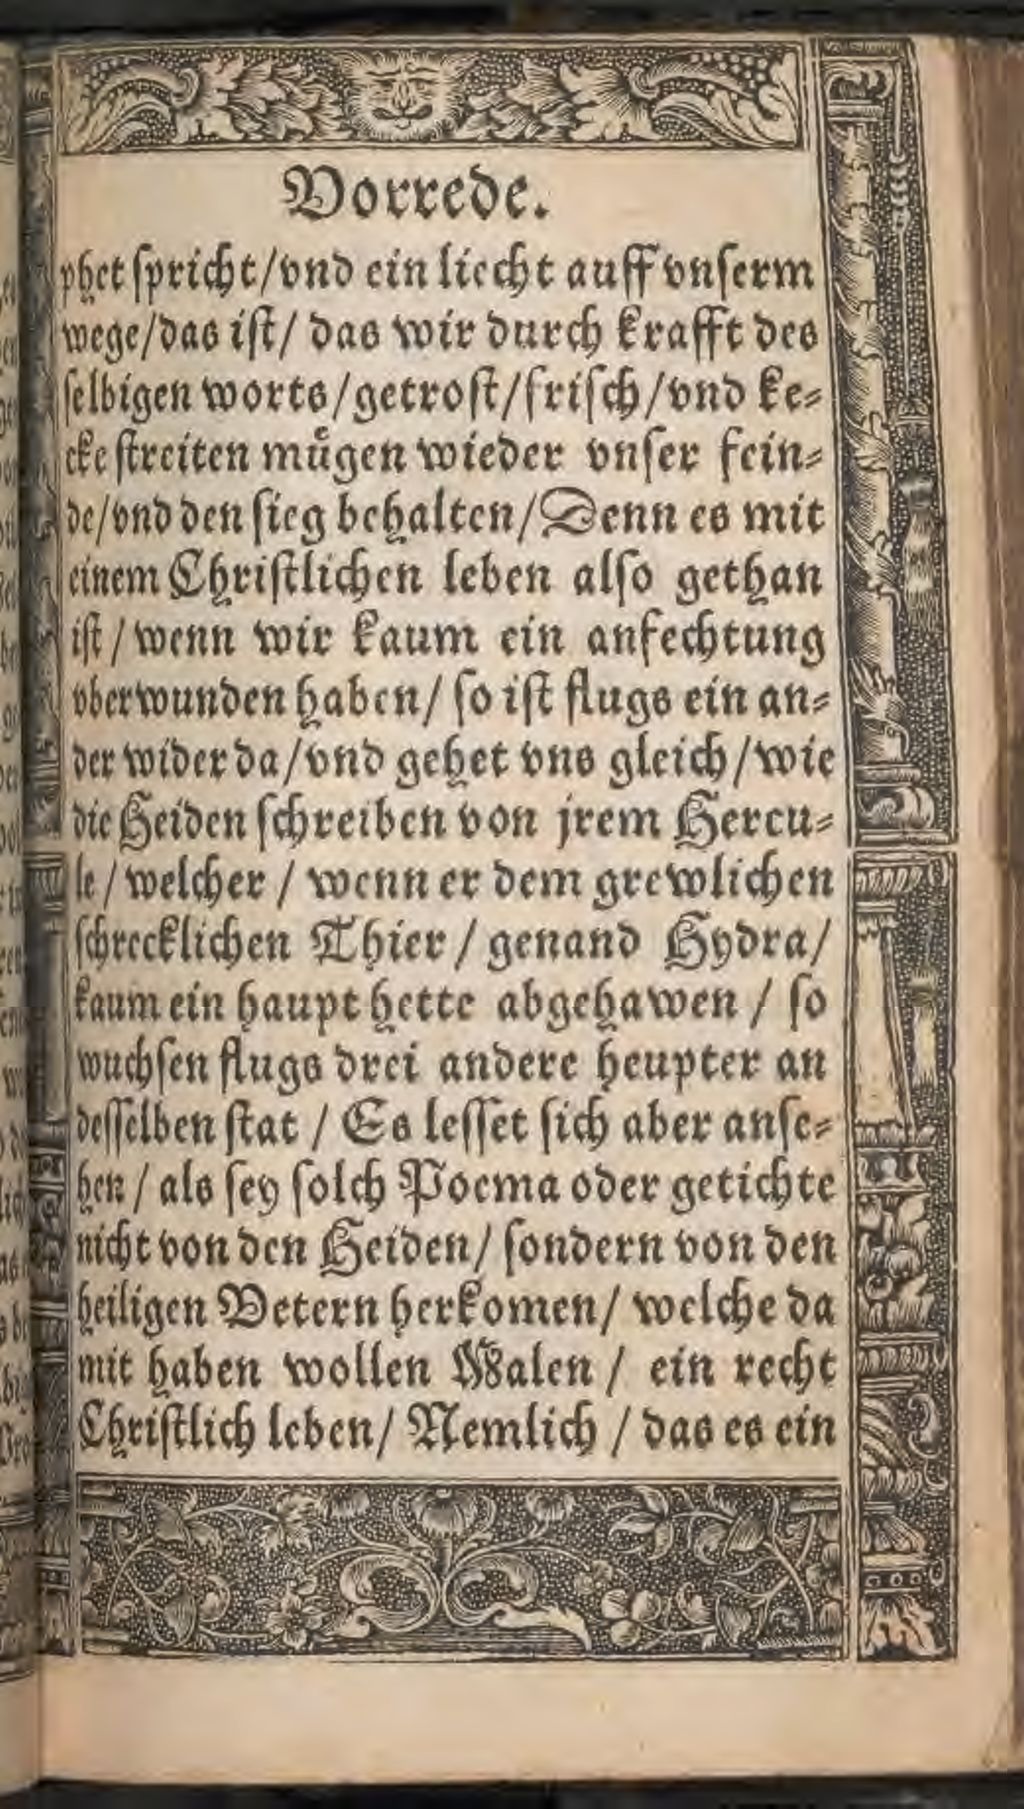 Vorrede.
phet ſpricht/vnd ein liecht auff vnſerm
wege/das iſt/ das wir durch krafft des
ſelbigen worts/getroſt/friſch/vnd ke⸗
cke ſtreiten muͤgen wieder vnſer fein⸗
de/vnd den ſieg behalten/Denn es mit
einem Chriſtlichen leben alſo gethan
iſt / wenn wir kaum ein anfechtung
vberwunden haben/ ſo iſt flugs ein an⸗
der wider da/vnd gehet vns gleich/wie
die Heiden ſchreiben von jrem Hercu⸗
le / welcher / wenn er dem grewlichen
ſchrecklichen Thier / genand Hydra/
kaum ein haupt hette abgehawen / ſo
wuchſen flugs drei andere heupter an
deſſelben ſtat / Es leſſet ſich aber anſe⸗
hen / als ſey ſolch Poema oder getichte
nicht von den Heiden/ ſondern von den
heiligen Vetern herkomen/ welche da
mit haben wollen Malen / ein recht
Chriſtlich leben/ Nemlich / das es ein